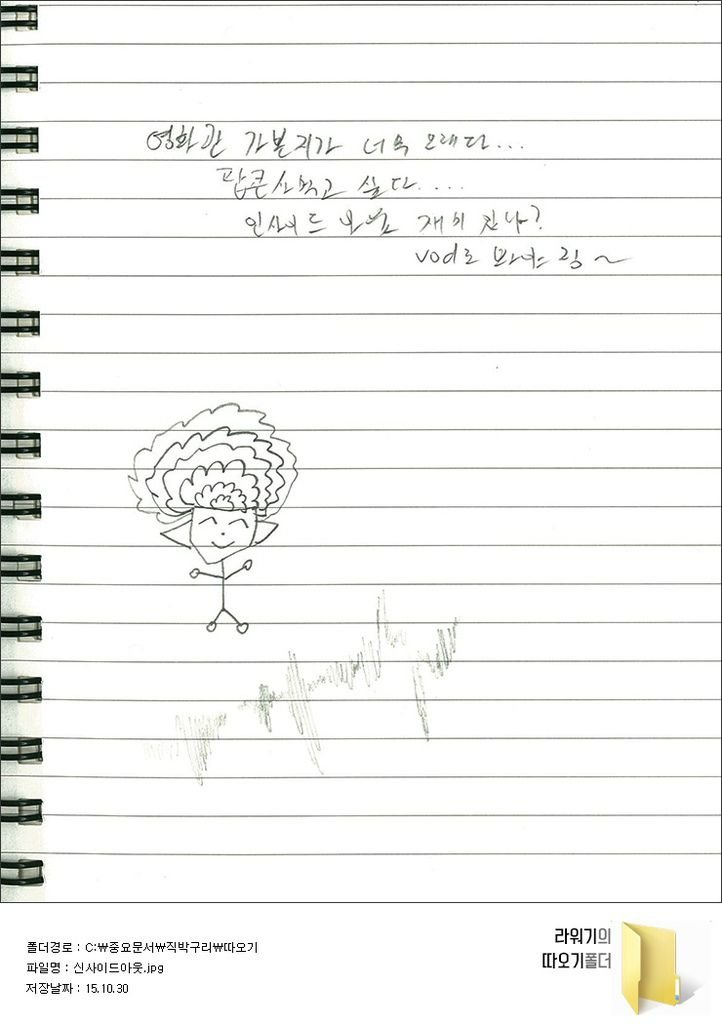 영화관 가본지가 너무 오래다...
팝콘 사먹고 싶다....
인사이드 재미 있나?
vod로 봐야 징~
폴더경로 : C:\중요문서\직박구리\따오기
파일명 : 신사이드아웃.jpg
저장날짜 : 15.10.30
라워기의
따오기폴더